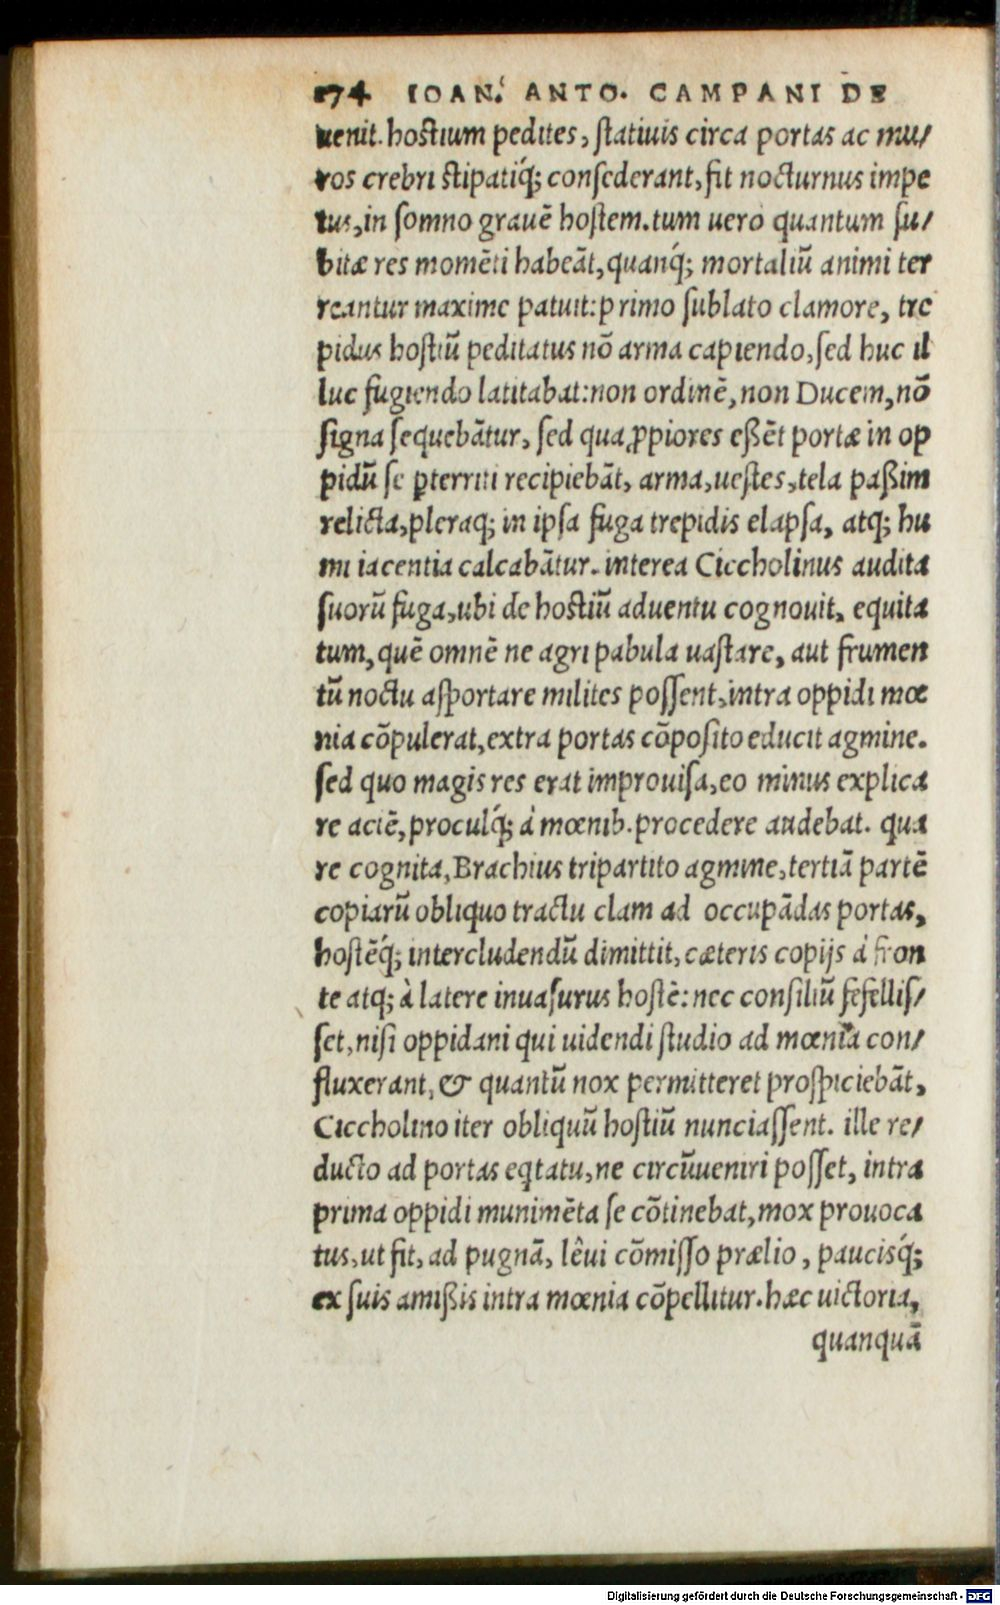 174 IOAN. ANTO. CAMPANI DE
uenit. hostium pedites, statiuis circa portas ac mu/
ros crebri stipatiq́; consederant, fit nocturnus impe
tus, in somno grauē hostem. tum uero quantum su/
bitæ res momēti habeāt, quanq́; mortaliū animi ter
reantur maxime patuit: primo sublato clamore, tre
pidus hostiū peditatus nō arma capiendo, sed huc il
luc fugiendo latitabat: non ordinē, non Ducem, nō
signa sequebātur, sed qua ꝓpiores eßēt portæ in op
pidū se ꝑterriti recipiebāt, arma, uestes, tela paßim
relicta, pleraq; in ipsa fuga trepidis elapsa, atq; hu
mi iacentia calcabātur. interea Ciccholinus audita
suorū fuga, ubi de hostiū aduentu cognouit, equita
tum, quē omnē ne agri pabula uastare, aut frumen
tū noctu asportare milites possent, intra oppidi mœ
nia cōpulerat, extra portas cōposito educit agmine.
sed quo magis res erat improuisa, eo minus explica
re aciē, proculq́; à mœnib. procedere audebat. qua
re cognita, Brachius tripartito agmine, tertiā partē
copiarū obliquo tractu clam ad occupādas portas,
hostēq́; intercludendū dimittit, cæteris copijs à fron
te atq; à latere inuasurus hostē: nec consiliū fefellis/
set, nisi oppidani qui uidendi studio ad mœnia con/
fluxerant, & quantū nox permitteret prospiciebāt,
Ciccholino iter obliquū hostiū nunciassent. ille re/
ducto ad portas eq̃tatu, ne circūueniri posset, intra
prima oppidi munimēta se cōtinebat, mox prouoca
tus, ut fit, ad pugnā, lêui cōmisso prælio, paucisq́;
ex suis amißis intra mœnia cōpellitur. hæc uictoria,
quanquā
Digitalisierung gefördert durch die Deutsche Forschungsgemeinschaft - DFG